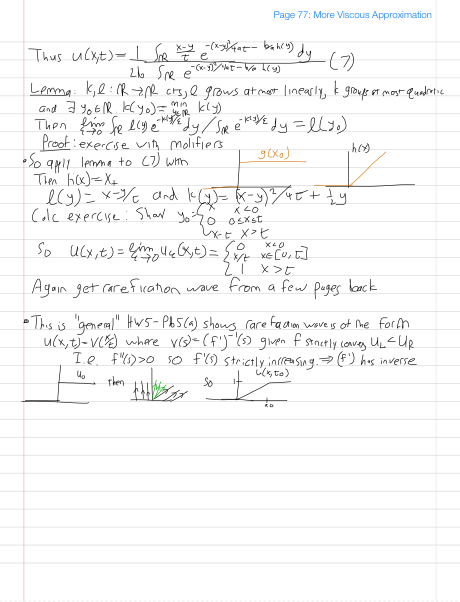 Page 77: More Viscous Approximation
Thus u(x,t) = 1/2b ∫ℝ x-y/t e^{-(x-y)²/4at - b/a h(y)} dy / ∫ℝ e^{-(x-y)²/4at - b/a h(y)} (7)
Lemma: k, l: ℝ→ℝ cts, l grows at most linearly, k grows at most quadratic
and ∃ y₀∈ℝ k(y₀) = min_{y∈ℝ} k(y)
Then lim_{ε→0} ∫ℝ l(y) e^{-k(y)/ε} dy / ∫ℝ e^{-k(y)/ε} dy = l(y₀)
Proof: exercise with mollifiers
• So apply lemma to (7) with
g(x₀)
h(x)
Then h(x) = x₊
l(y) = x-y/t and k(y) = (x-y)²/4t + ½ y
Calc exercise: Show y₀ = { x x<0
0 0≤x≤t
x-t x>t
So u(x,t) = lim_{ε→0} u_ε(x,t) = { 0 x<0
x/t x∈[0,t]
1 x>t
Again get rarefication wave from a few pages back
• This is "general" HW5-Pb5(a) shows rarefaction wave is of the form
u(x,t) = v(x/t) where v(s) = (f')⁻¹(s) given f strictly convex u_L < u_R
I.e. f''(s)>0 so f'(s) strictly increasing ⇒ (f') has inverse
u₀ then so 1 u(x,t₀)